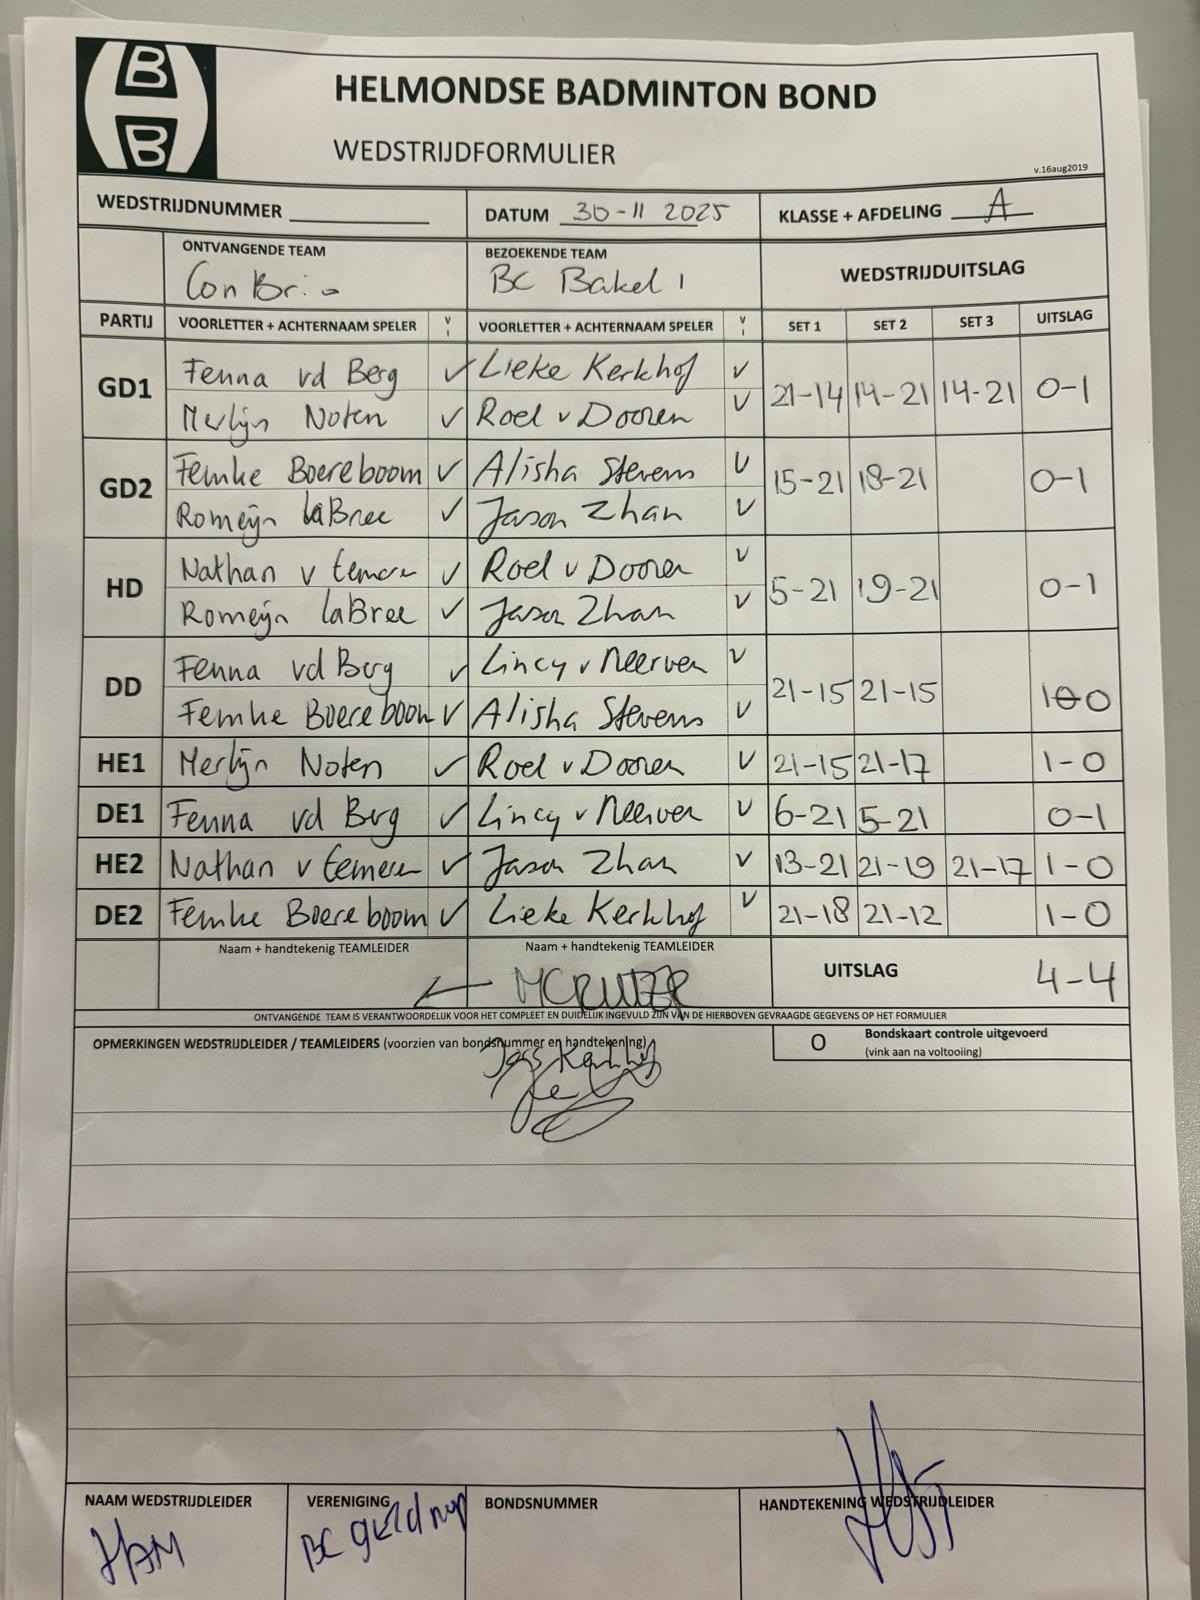 B
B
HELMONDSE BADMINTON BOND
WEDSTRIJDFORMULIER
v.16aug2019
WEDSTRIJDNUMMER
DATUM 30-11 2025
KLASSE + AFDELING A
ONTVANGENDE TEAM
Con Brio
BEZOEKENDE TEAM
BC Bakel 1
WEDSTRIJDUITSLAG
PARTIJ VOORLETTER + ACHTERNAAM SPELER V I VOORLETTER + ACHTERNAAM SPELER V I SET 1 SET 2 SET 3 UITSLAG
GD1 Fenna vd Berg V Lieke Kerkhof V 21-14 14-21 14-21 0-1
Merlijn Noten V Roel v Dooren V
GD2 Femke Boereboom V Alisha Stevens V 15-21 18-21 0-1
Romeijn laBree V Jason Zhan V
HD Nathan v Temeren V Roel v Dooren V 5-21 19-21 0-1
Romeijn laBree V Jason Zhan V
DD Fenna vd Berg V Lincy v Neerven V 21-15 21-15 1-0
Femke Boereboom V Alisha Stevens V
HE1 Merlijn Noten V Roel v Dooren V 21-15 21-17 1-0
DE1 Fenna vd Berg V Lincy v Neerven V 6-21 5-21 0-1
HE2 Nathan v Temeren V Jason Zhan V 13-21 21-19 21-17 1-0
DE2 Femke Boereboom V Lieke Kerkhof V 21-18 21-12 1-0
Naam + handtekenig TEAMLEIDER
Naam + handtekenig TEAMLEIDER
UITSLAG 4-4
ONTVANGENDE TEAM IS VERANTWOORDELIJK VOOR HET COMPLEET EN DUIDELIJK INGEVULD ZIJN VAN DE HIERBOVEN GEVRAAGDE GEGEVENS OP HET FORMULIER
OPMERKINGEN WEDSTRIJDLEIDER / TEAMLEIDERS (voorzien van bondsnummer en handtekening)
O Bondskaart controle uitgevoerd
(vink aan na voltooiing)
NAAM WEDSTRIJDLEIDER
HAM
VERENIGING
BC geldrop
BONDSNUMMER
HANDTEKENING WEDSTRIJDLEIDER